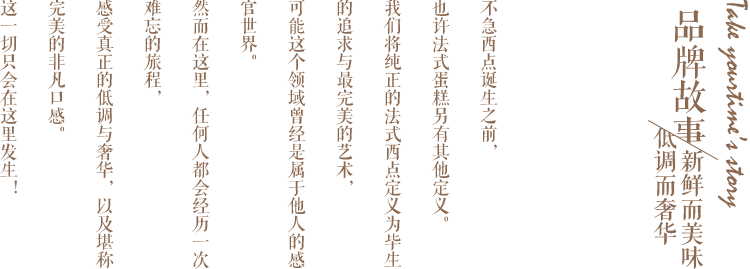 Take yourtime's story
品牌故事
新鲜而美味
低调而奢华
不急西点诞生之前，
也许法式蛋糕另有其他定义。
我们将纯正的法式西点定义为毕生
的追求与最完美的艺术，
可能这个领域曾经是属于他人的感
官世界。
然而在这里，任何人都会经历一次
难忘的旅程，
感受真正的低调与奢华，以及堪称
完美的非凡口感。
这一切只会在这里发生！